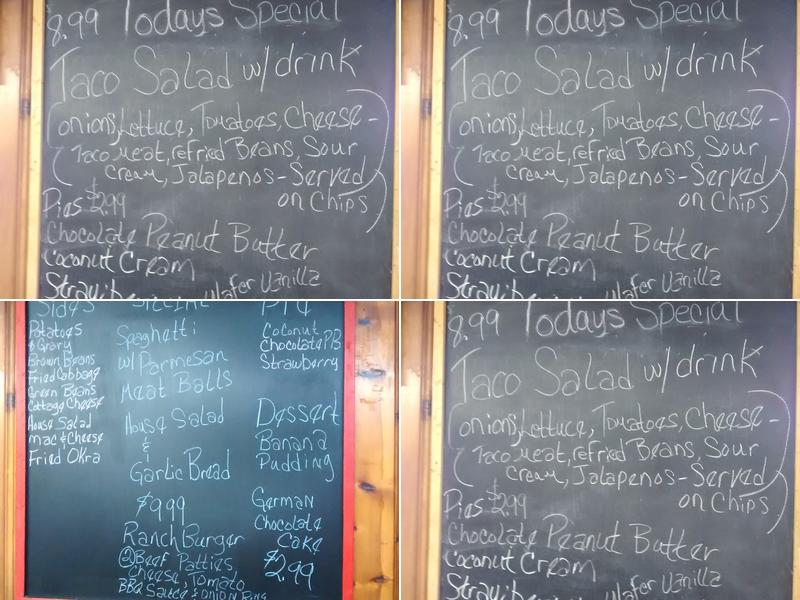 8.99 Todays Special
Taco Salad w/drink
(onions, Lettuce, Tomatoes, Cheese-
Taco meat, refried Beans, Sour
Cream, Jalapenos-Served
on Chips)
Pies $2.99
Chocolate Peanut Butter
Coconut Cream
Wafer Vanilla
8.99 Todays Special
Taco Salad w/drink
(onions, Lettuce, Tomatoes, Cheese-
Taco meat, refried Beans, Sour
Cream, Jalapenos-Served
on Chips)
Pies $2.99
Chocolate Peanut Butter
Coconut Cream
Wafer Vanilla
Sides
Potatoes
& Gravy
Brown Beans
Fried Cabbage
Green Beans
Cottage Cheese
House Salad
Mac & Cheese
Fried Okra
Spaghetti
w/Parmesan
Meat Balls
House Salad
&
Garlic Bread
$9.99
Ranch Burger
② Beef Patties,
Cheese, Tomato
BBQ Sauce & onion Ring
Pie
Coconut
Chocolate PB
Strawberry
Dessert
Banana
Pudding
German
Chocolate
Cake
$2.99
8.99 Todays Special
Taco Salad w/drink
(onions, Lettuce, Tomatoes, Cheese-
Taco meat, refried Beans, Sour
Cream, Jalapenos-Served
on Chips)
Pies $2.99
Chocolate Peanut Butter
Coconut Cream
Wafer Vanilla